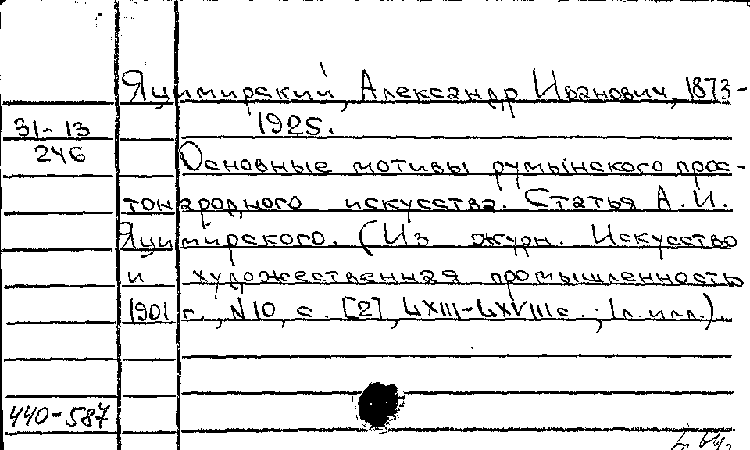 Яцимирский, Александр Иванович, 1873-
31-13 1925.
246 Основные мотивы румынского прос-
тонародного искусства. Статья А. И.
Яцимирского. (Из журн. Искусство
и художественная промышленность
1901 г., N10, с. [2], LXIII-LXVIII с.; 1 л. илл.).
440-587